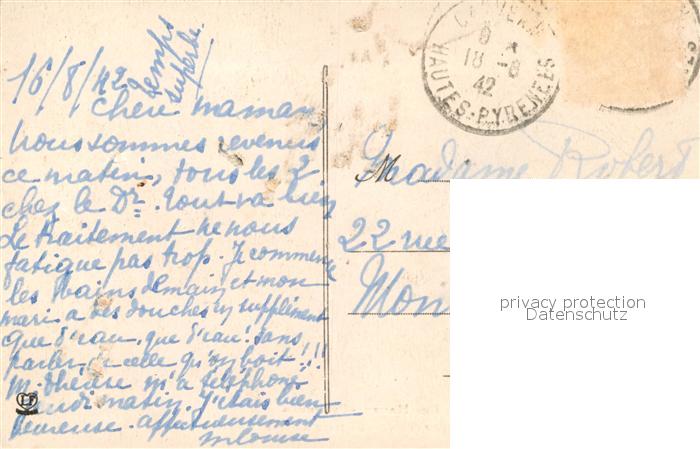 16/8/42
temps
superbe
Chère maman,
Nous sommes revenus
ce matin, tous les 2
chez le Dr. Tout va bien
Le traitement ne nous
fatigue pas trop. Je commence
les bains demain, et mon
mari a des douches en supplément
que d'eau, que d'eau! sans
parler de celle qu'on boit!!!
M. Thérèse m'a téléphoné
lundi matin. J'étais bien
heureuse. affectueusement
mlouise
HAUTES-PYRENEES
18 -8
42
Madame Robert
22 rue
Mon
privacy protection
Datenschutz